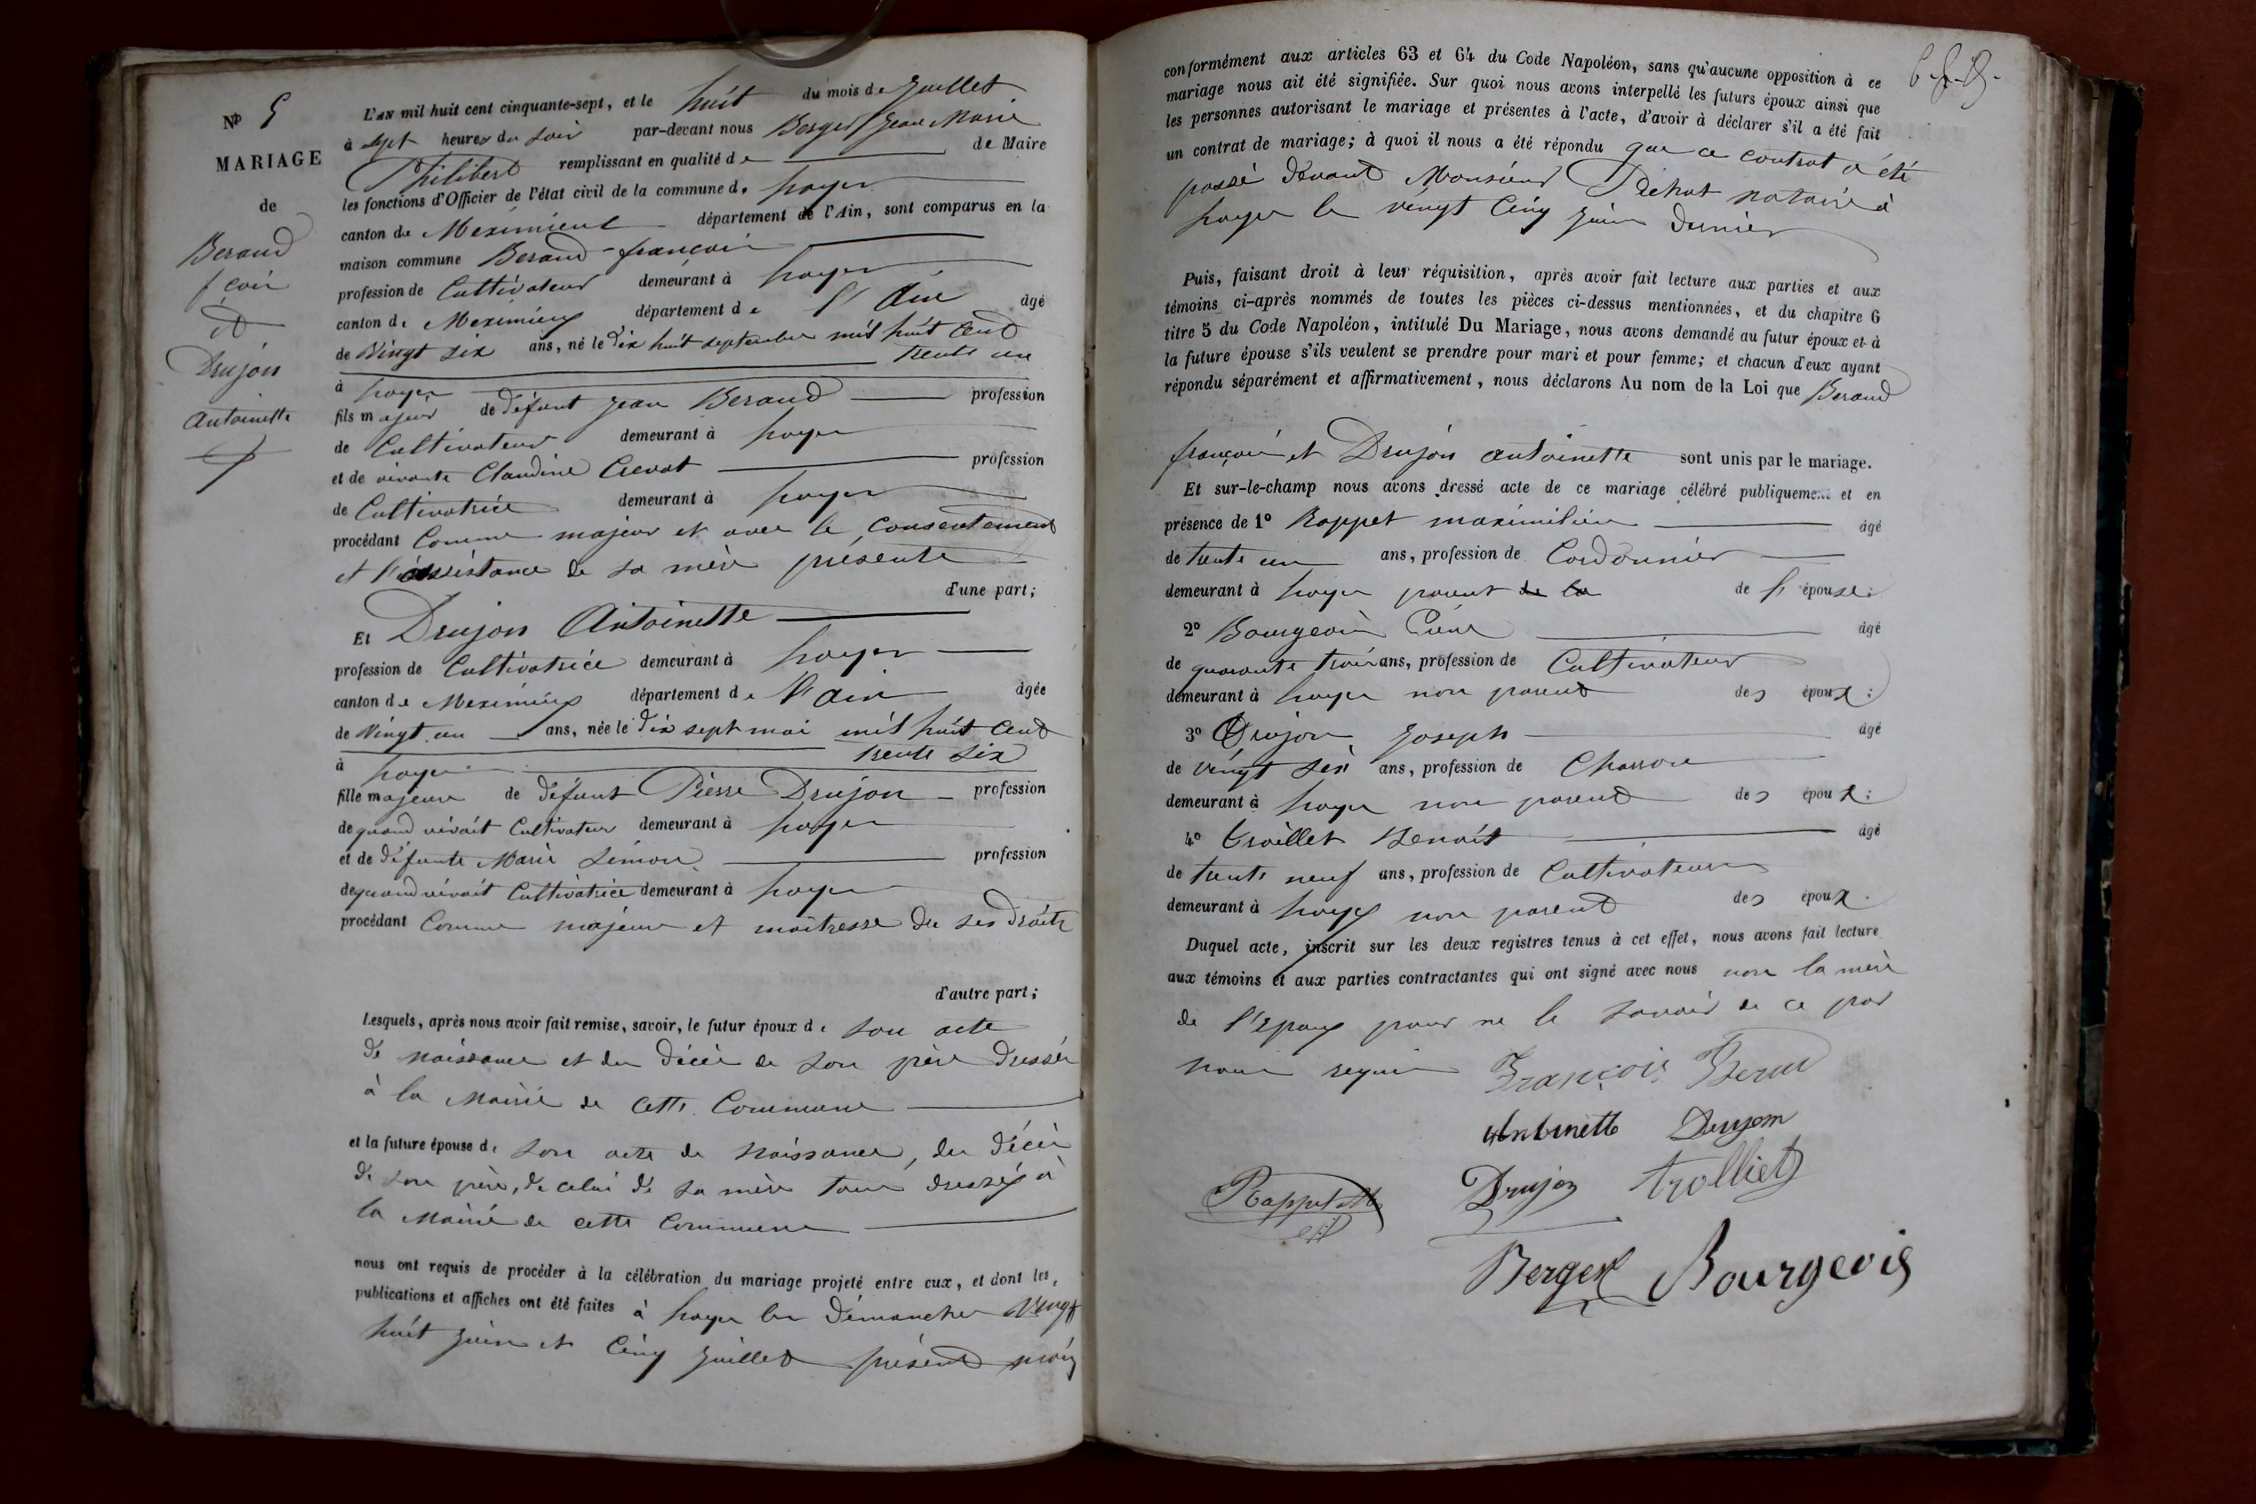 Nº 5
MARIAGE
de
Beraud
fçois
et
Drujon
Antoinette
L'AN mil huit cent cinquante-sept, et le huit du mois de Juillet
à sept heures du soir par-devant nous Berger Jean Marie
Philibert remplissant en qualité de de Maire
les fonctions d'Officier de l'état civil de la commune d. Loyes
canton de Meximieux département de l'Ain, sont comparus en la
maison commune Beraud françois
profession de Cultivateur demeurant à Loyes
canton de Meximieux département de l'Ain âgé
de Vingt six ans, né le dix huit septembre mil huit Cent
trente un
à Loyes
fils majeur de défunt Jean Beraud profession
de Cultivateur demeurant à Loyes
et de vivante Claudine Crevat profession
de Cultivatrice demeurant à Loyes
procédant Comme majeur et avec le Consentement
et l'assistance de sa mère présente
d'une part;
Et Drujon Antoinette
profession de Cultivatrice demeurant à Loyes
canton de Meximieux département de l'ain âgée
de Vingt un ans, née le dix sept mai mil huit Cent
trente six
à Loyes
fille majeure de défunt Pierre Drujon profession
de quand vivait Cultivateur demeurant à Loyes
et de défunte Marie Simon profession
de quand vivait Cultivatrice demeurant à Loyes
procédant Comme majeure et maîtresse de ses droits
d'autre part;
Lesquels, après nous avoir fait remise, savoir, le futur époux de son acte
de naissance et du décès de son père dressés
à la Mairie de cette Commune
et la future épouse de son acte de naissance, du décès
de son père, de celui de sa mère tous dressés à
la Mairie de cette Commune
nous ont requis de procéder à la célébration du mariage projeté entre eux, et dont les
publications et affiches ont été faites à Loyes les dimanches Vingt
huit Juin et Cinq Juillet présent mois
conformément aux articles 63 et 64 du Code Napoléon, sans qu'aucune opposition à ce
mariage nous ait été signifiée. Sur quoi nous avons interpellé les futurs époux ainsi que
les personnes autorisant le mariage et présentes à l'acte, d'avoir à déclarer s'il a été fait
un contrat de mariage; à quoi il nous a été répondu que ce contrat a été
passé devant Monsieur Pichat notaire à
Loyes le vingt Cinq Juin dernier
Puis, faisant droit à leur réquisition, après avoir fait lecture aux parties et aux
témoins ci-après nommés de toutes les pièces ci-dessus mentionnées, et du chapitre 6
titre 5 du Code Napoléon, intitulé Du Mariage, nous avons demandé au futur époux et à
la future épouse s'ils veulent se prendre pour mari et pour femme; et chacun d'eux ayant
répondu séparément et affirmativement, nous déclarons Au nom de la Loi que Beraud
françois et Drujon Antoinette sont unis par le mariage.
Et sur-le-champ nous avons dressé acte de ce mariage célébré publiquement et en
présence de 1º Rappet maximilien âgé
de trente un ans, profession de Cordonnier
demeurant à Loyes parent de la de l'épouse;
2º Bourgeois Pierre âgé
de quarante trois ans, profession de Cultivateur
demeurant à Loyes non parent des époux;
3º Drujon Joseph âgé
de vingt six ans, profession de Charron
demeurant à Loyes non parent des époux;
4º trolliet Benoit âgé
de trente neuf ans, profession de Cultivateur
demeurant à Loyes non parent des époux.
Duquel acte, inscrit sur les deux registres tenus à cet effet, nous avons fait lecture
aux témoins et aux parties contractantes qui ont signé avec nous non la mère
de l'époux pour ne le savoir de ce par
nous requis François Beraud
Antoinette Drujon
Rappet Drujon trolliet
Berger Bourgeois